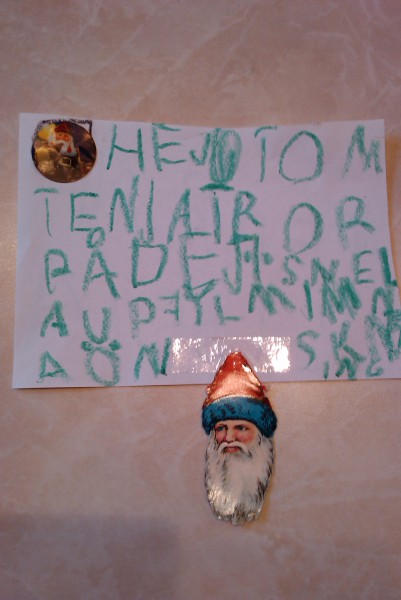 HEJ TOM
TEN JA TR OR
PÅ DEJ. SNEL
A UPFYL MIMN